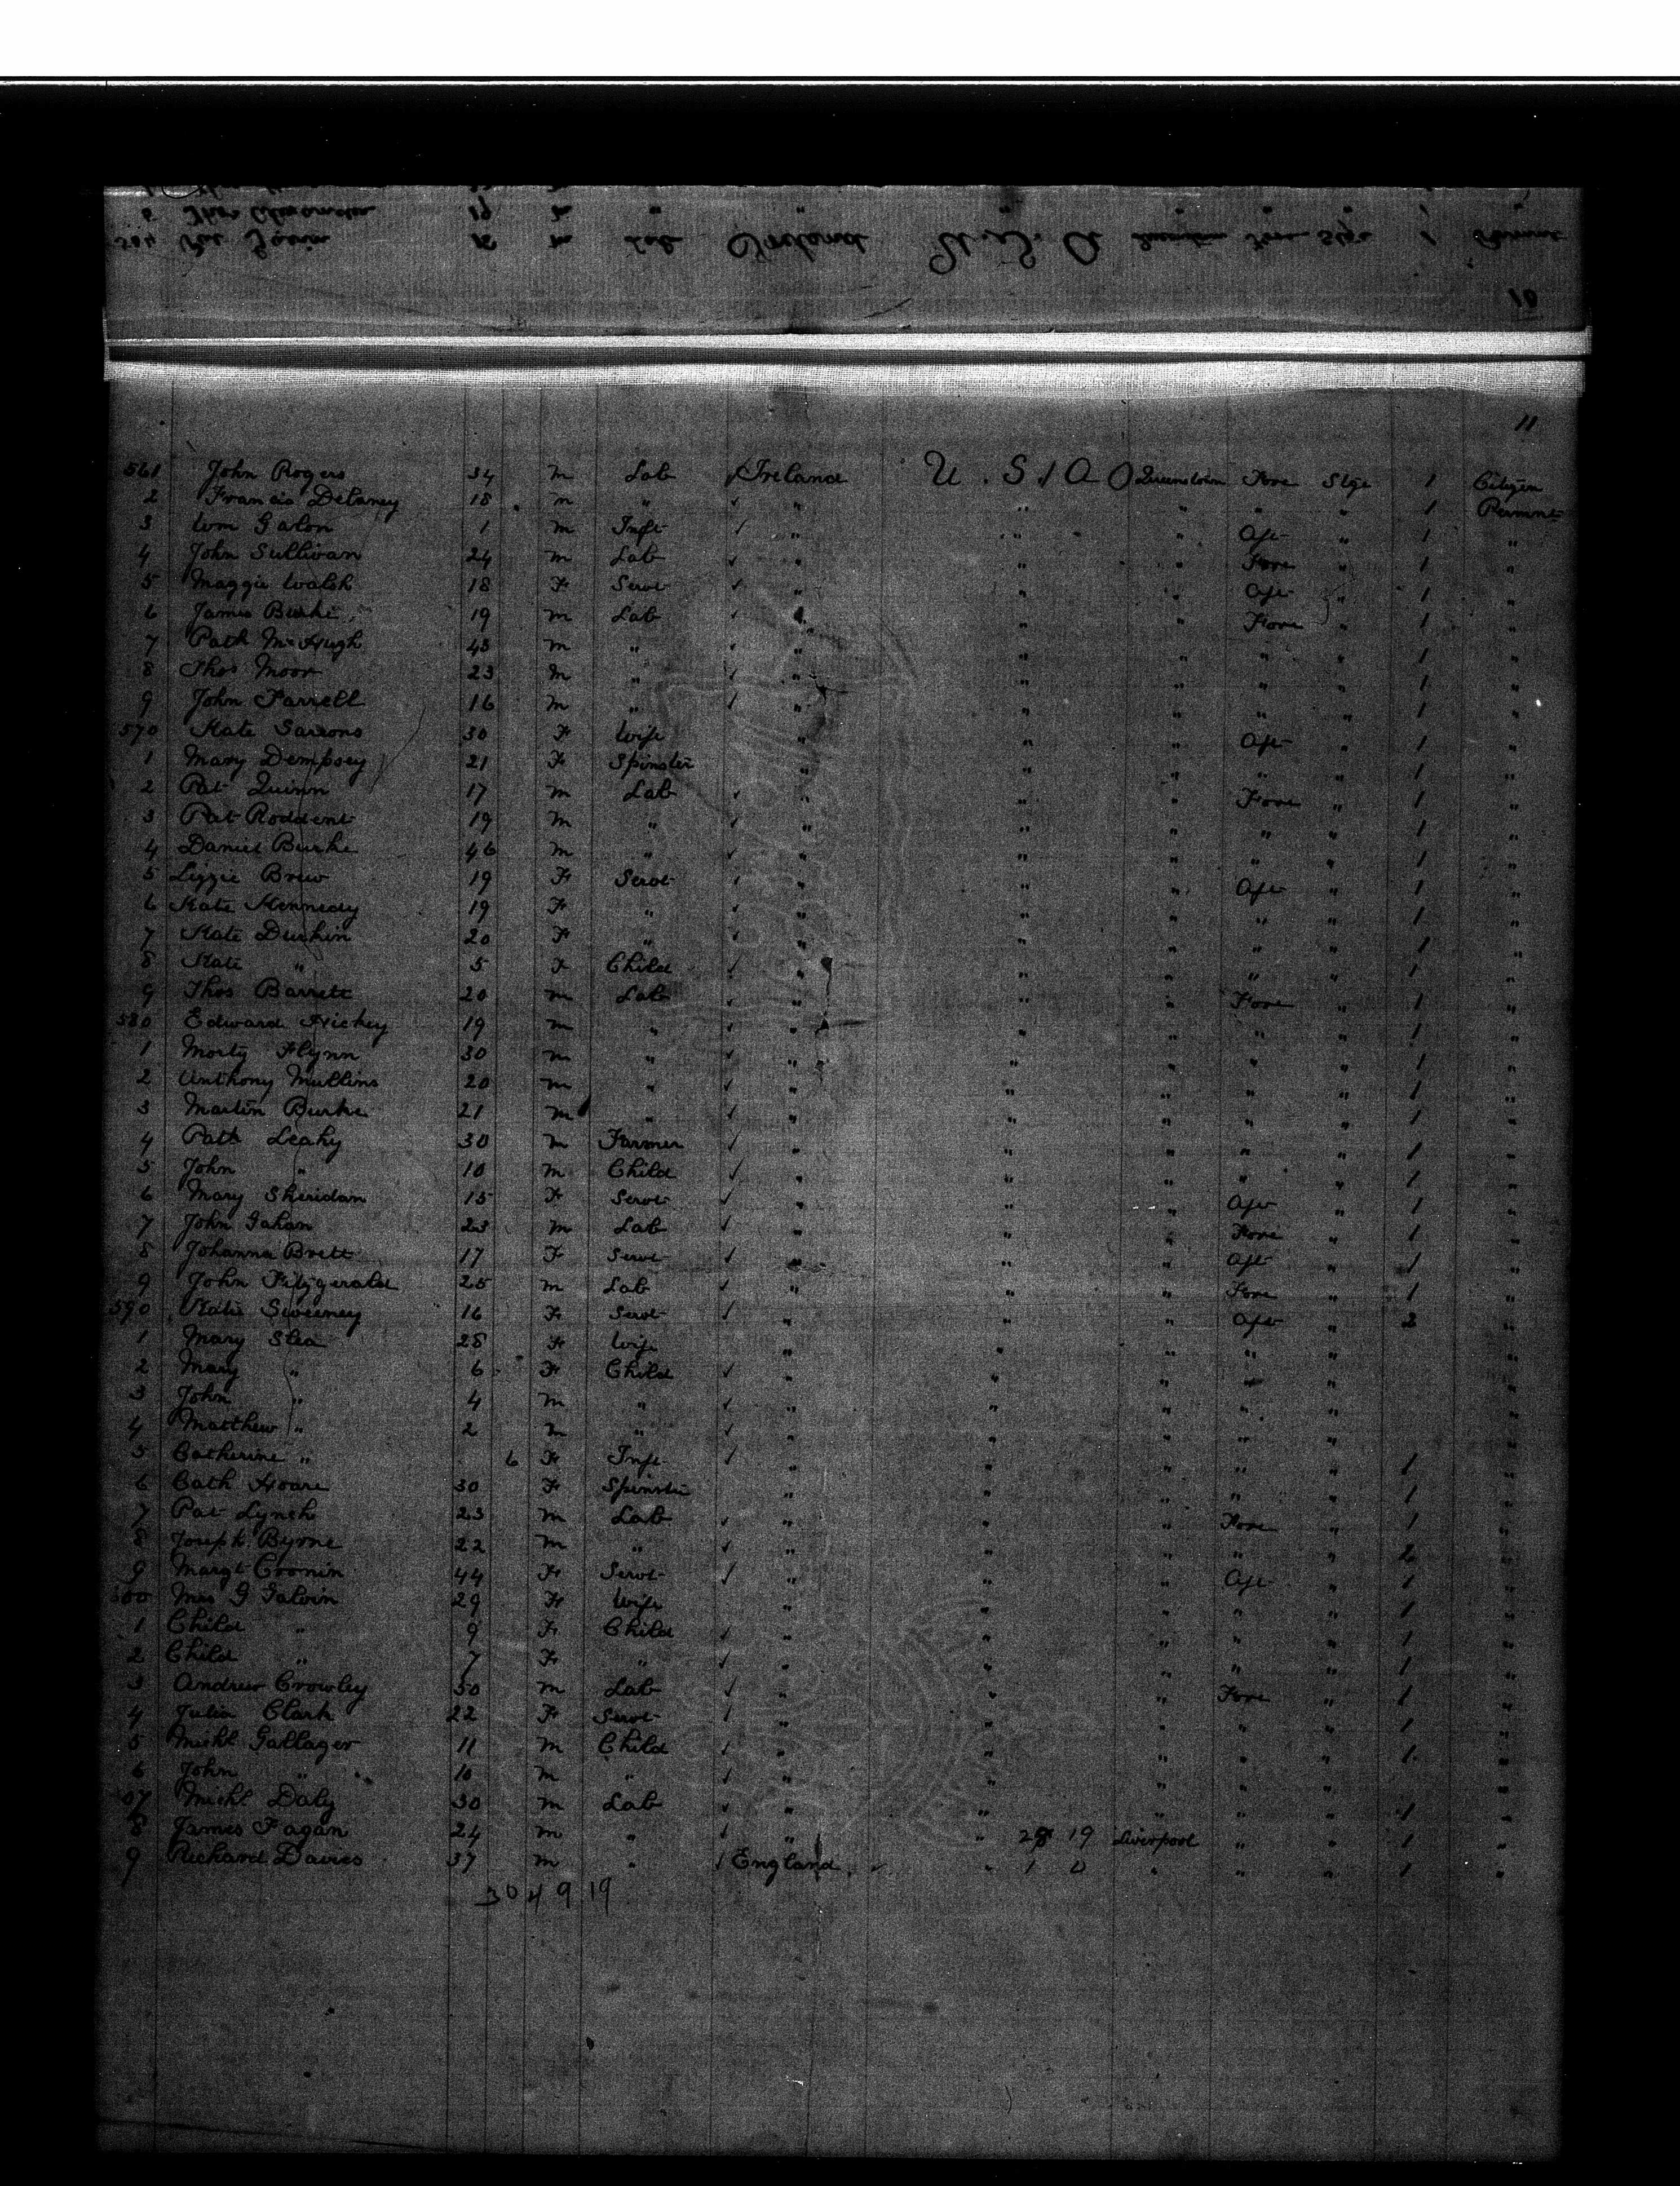 11
561 John Rogers 34 m Lab Ireland U.S.A Queenstown Fore Stge 1 Citizen
2 Francis Delaney 18 m " " " " " " 1 Permnt
3 Wm Galon 1 m Inft " " " Aft " 1 "
4 John Sullivan 24 m Lab " " " Fore " 1 "
5 Maggie Walsh 18 F Servt " " " Aft " 1 "
6 James Burke 19 m Lab " " " Fore " 1 "
7 Patk McHugh 45 m " " " " " " 1 "
8 Thos Moor 23 m " " " " " " 1 "
9 John Farrell 16 m " " " " " " 1 "
570 Kate Sarrons 30 F Wife " " " Aft " 1 "
1 Mary Dempsey 21 F Spinster " " " " " 1 "
2 Pat Quinn 17 m Lab " " " Fore " 1 "
3 Pat Roddent 19 m " " " " " " 1 "
4 Daniel Burke 46 m " " " " " " 1 "
5 Lizzie Brew 19 F Servt " " " Aft " 1 "
6 Kate Kennedy 19 F " " " " " " 1 "
7 Kate Durkin 20 F " " " " " " 1 "
8 Kate " 5 F Child " " " " " 1 "
9 Thos Barrett 20 m Lab " " " Fore " 1 "
580 Edward Hickey 19 m " " " " " " 1 "
1 Morty Flynn 30 m " " " " " " 1 "
2 Anthony Mullins 20 m " " " " " " 1 "
3 Martin Burke 21 m " " " " " " 1 "
4 Patk Leahy 30 m Farmer " " " " " 1 "
5 John " 10 m Child " " " " " 1 "
6 Mary Sheridan 15 F Servt " " " Aft " 1 "
7 John Gahan 23 m Lab " " " Fore " 1 "
8 Johanna Brett 17 F Servt " " " Aft " 1 "
9 John Fitzgerald 25 m Lab " " " Fore " 1 "
590 Katie Sweeney 16 F Servt " " " Aft " 2 "
1 Mary Slea 28 F Wife " " " " " "
2 Mary " 6 F Child " " " " " "
3 John " 4 m " " " " " " "
4 Matthew " 2 m " " " " " " "
5 Catherine " 6 F Inft " " " " " 1 "
6 Cath Hoare 30 F Spinster " " " " " 1 "
7 Pat Lynch 23 m Lab " " " Fore " 1 "
8 Joseph Byrne 22 m " " " " " " 2 "
9 Margt Cronin 44 F Servt " " " Aft " 1 "
600 Mrs G Galvin 29 F Wife " " " " " 1 "
1 Child " 9 F Child " " " " " 1 "
2 Child " 7 F " " " " " " 1 "
3 Andrew Crowley 50 m Lab " " " Fore " 1 "
4 Julia Clark 22 F Servt " " " " " 1 "
5 Michl Gallager 11 m Child " " " " " 1 "
6 John " 10 m " " " " " " "
07 Michl Daly 30 m Lab " " " " " 1 "
8 James Fagan 24 m " " " 28 19 Liverpool " " 1 "
9 Richard Davies 37 m " England " 1 0 " " " 1 "
30 4 9 19